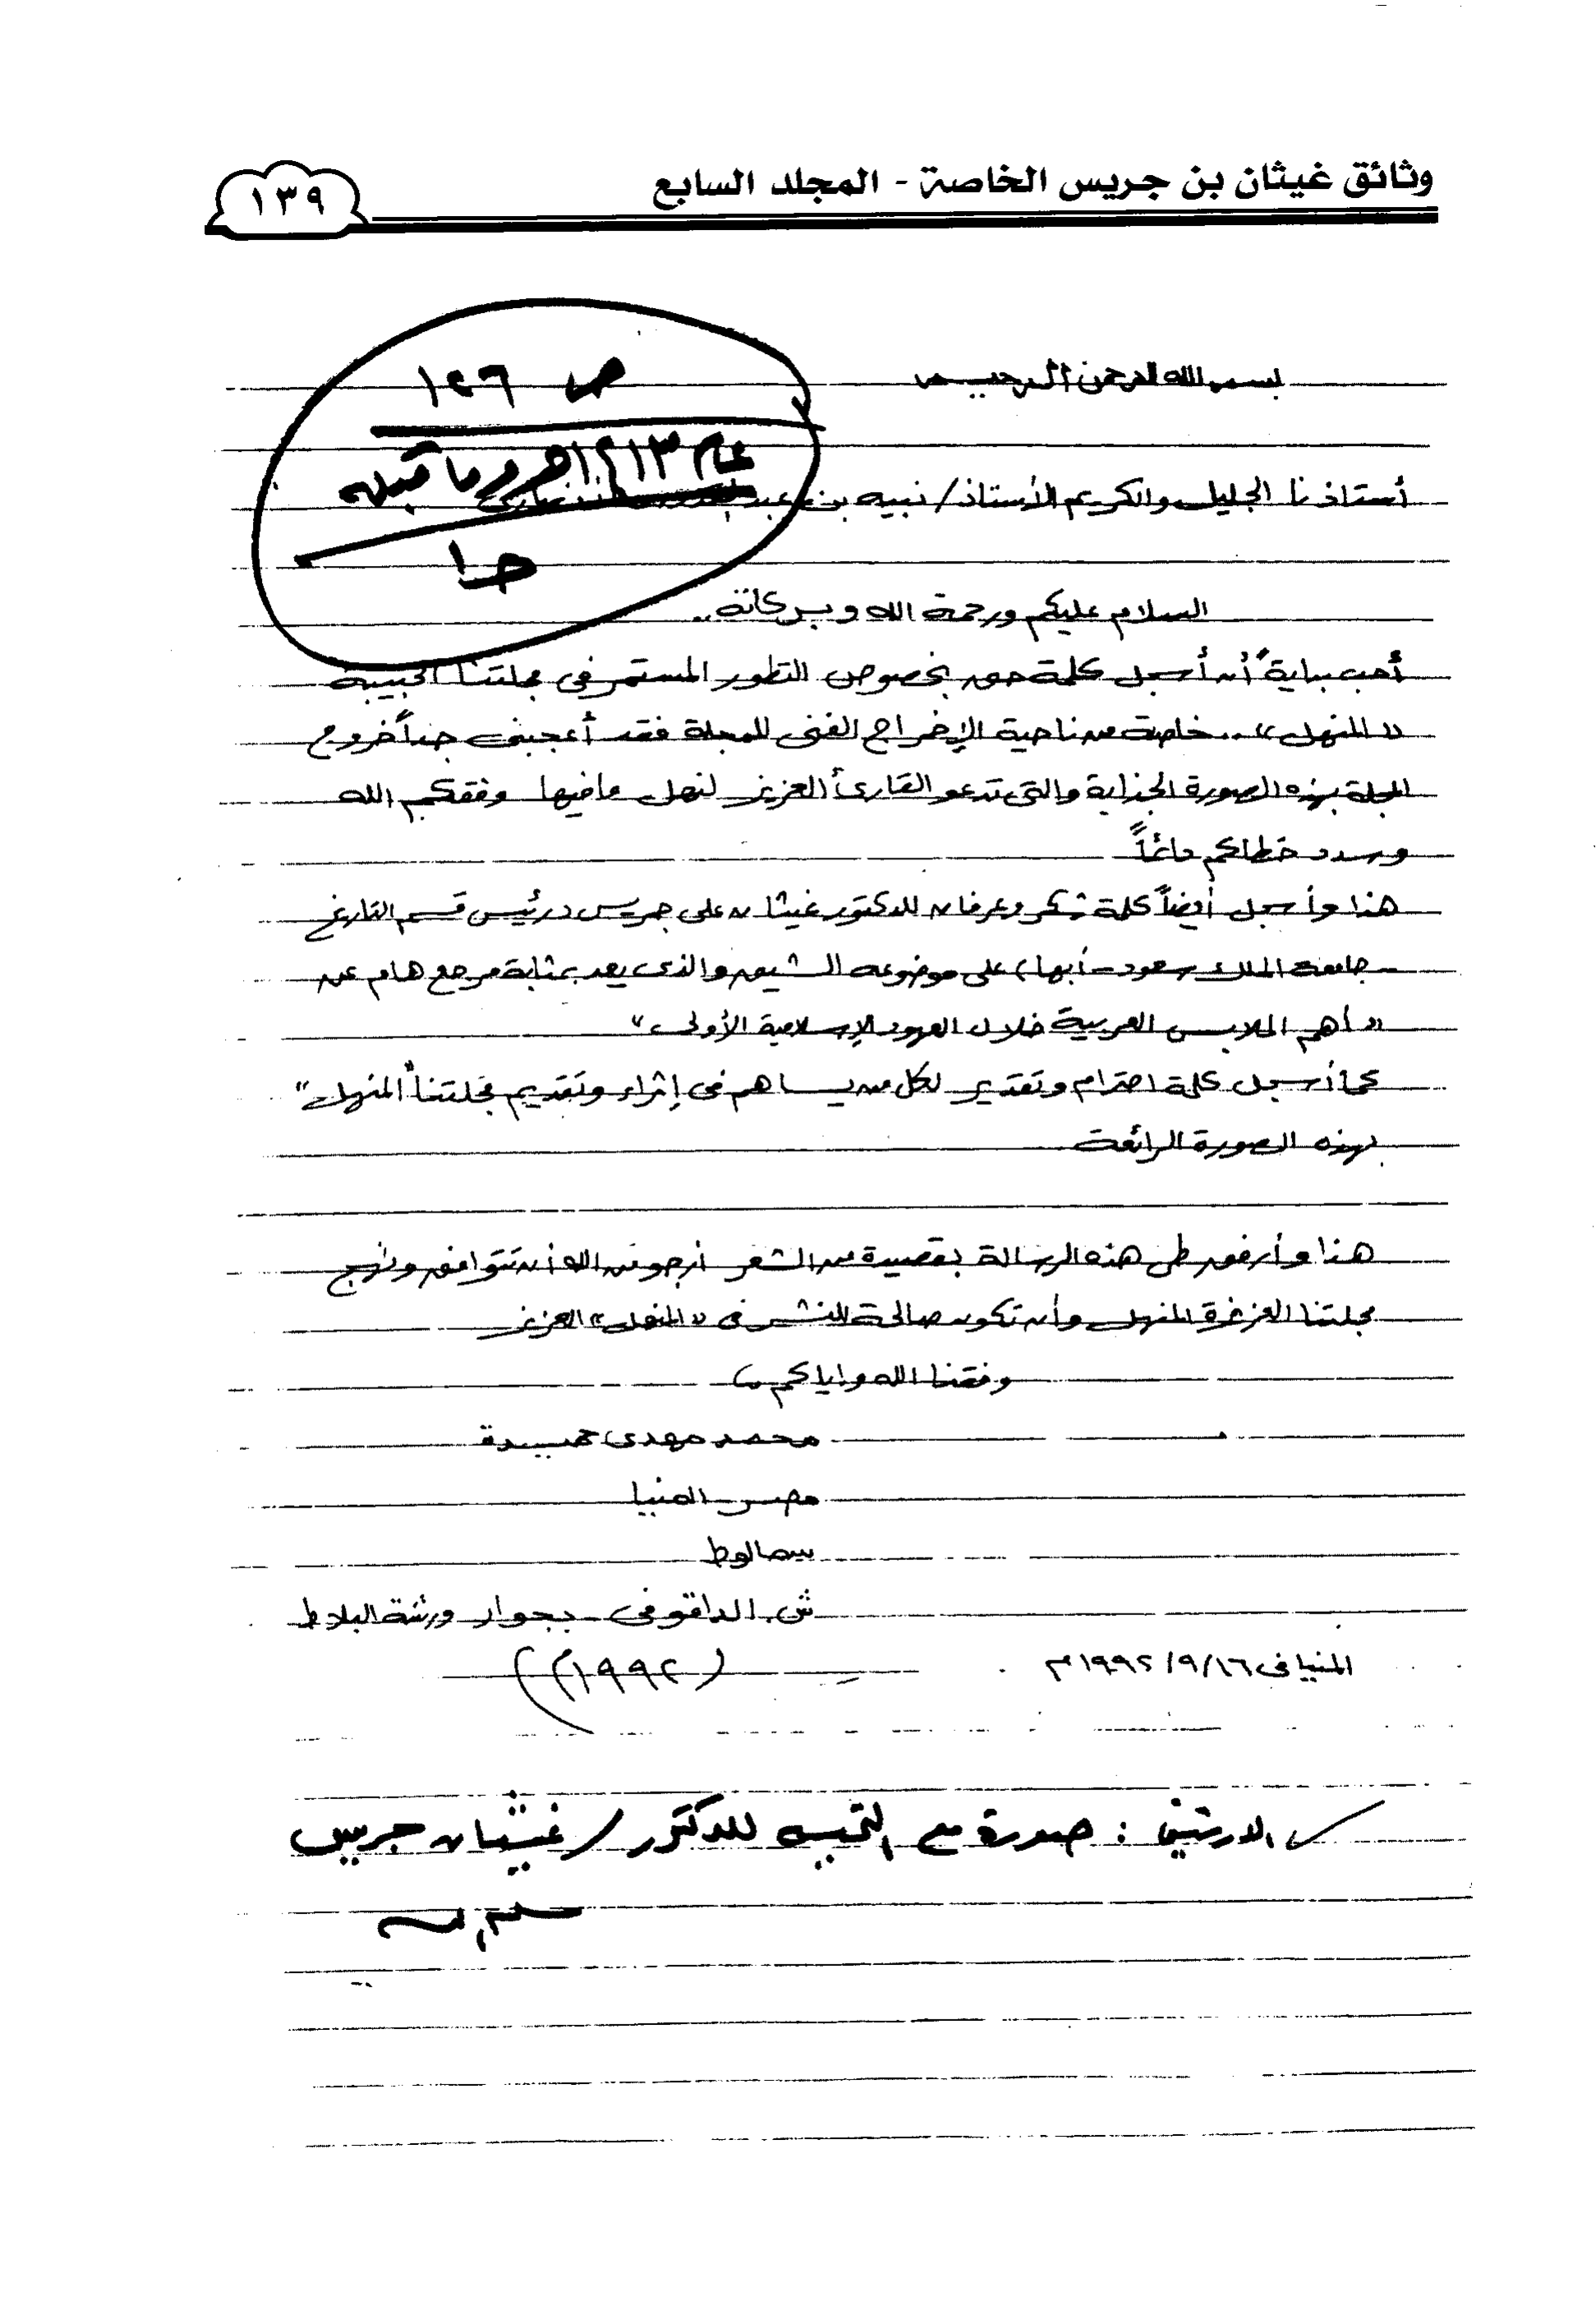 وثائق غيثان بن جريس الخاصة - المجلد السابع
١٣٩
ص ١٤٦
عام ١٤١٣هـ وما قبله
جـ١
بسم الله الرحمن الرحيم
أستاذنا الجليل والكريم الأستاذ/ نبيه بن عبد
السلام عليكم ورحمة الله وبركاته..
أحب بداية أن أسجل كلمة حق بخصوص التطور المستمر في مجلتنا الحبيبة
«المنهل».. خاصة من ناحية الإخراج الفني للمجلة فقد أعجبني جداً خروج
المجلة بهذه الصورة الجذابة والتي تدعو القارئ العزيز لنهل ما فيها وفقكم الله
وسدد خطاكم دائماً
هذا وأسجل أيضاً كلمة شكر وعرفان للدكتور غيثان على جريس (رئيس قسم التاريخ
جامعة الملك سعود - أبها) على موضوعه الشيق والذي يعد بمثابة مرجع هام عن
«أهم الملابس العربية خلال العهود الإسلامية الأولى»
كما أسجل كلمة احترام وتقدير لكل من يساهم في إثراء وتقديم مجلتنا "المنهل"
بهذه الصورة الرائعة
هذا وأرفق طى هذه الرسالة بقصيدة من الشعر أرجو من الله أن تتوافق ونهج
مجلتنا العزيزة المنهل وأن تكون صالحة للنشر في «المنهل» العزيز
وفقنا الله وإياكم
محمد مهدى حميدة
مصر - المنيا
سمالوط
ش. الداقوفى - بجوار ورشة البلاط
المنيا في ١٦/ ٩/ ١٩٩٢م
(١٩٩٢م)
صورة مع التحية للدكتور/ غيثان جريس